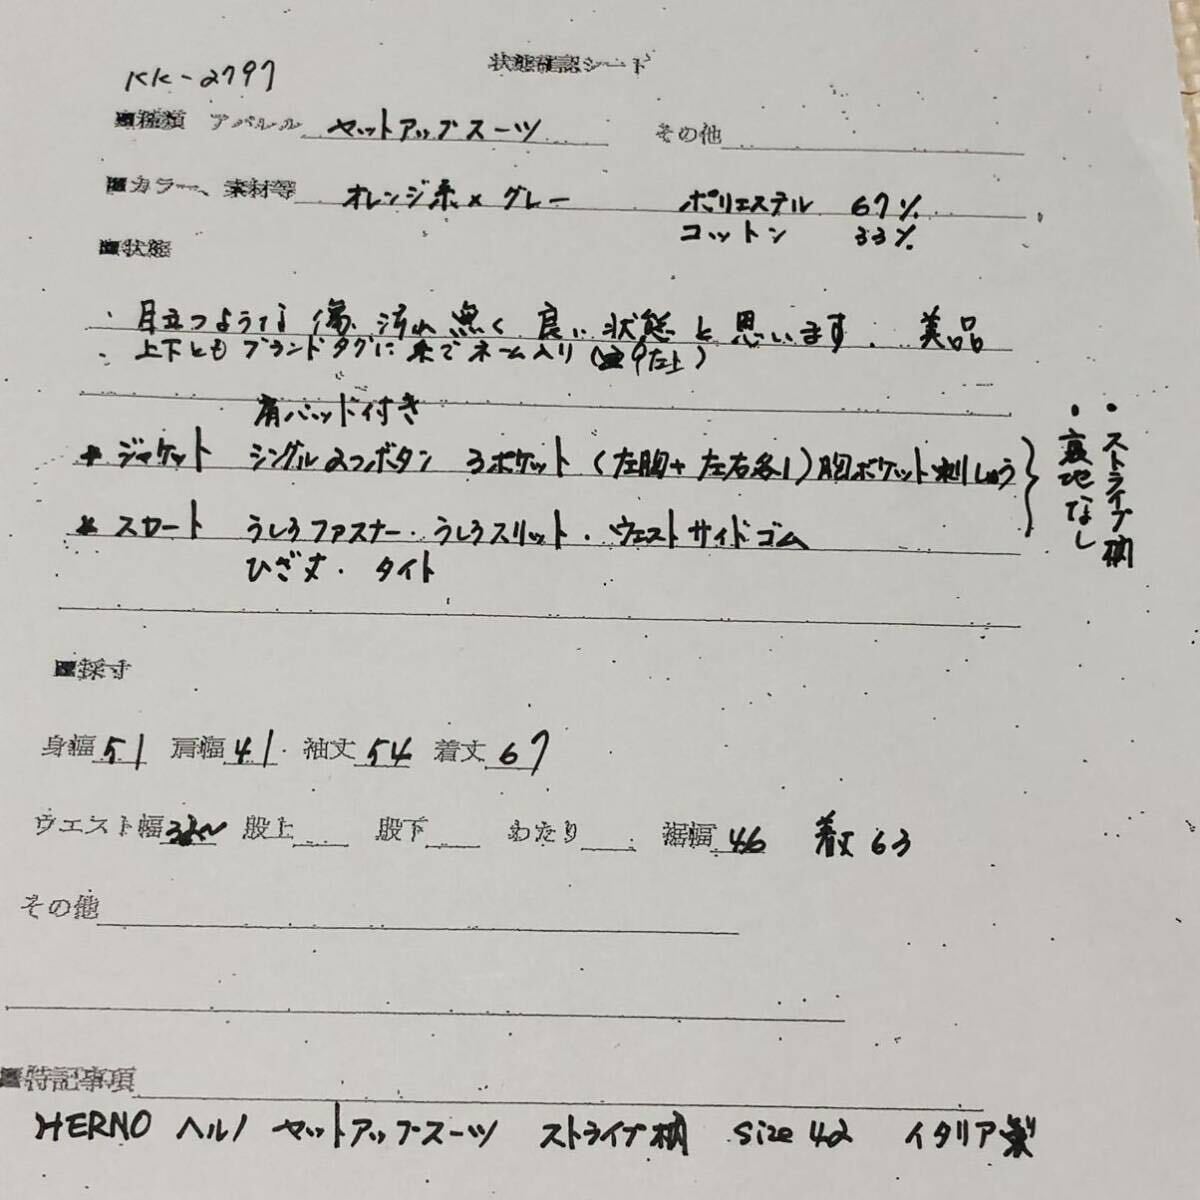 状態確認シート
KK-2797
■種類 アパレル セットアップスーツ その他
■カラー、素材等 オレンジ系×グレー ポリエステル 67%
コットン 33%
■状態
・目立つような傷、汚れ無く良い状態と思います。 美品
・上下ともブランドタグに糸でネーム入り
肩パッド付き
* ジャケット シングル2つボタン 3ポケット (左胸+左右各1) 胸ポケット刺しゅう
* スカート うしろファスナー・うしろスリット・ウェストサイドゴム
ひざ丈・タイト
・ストライプ柄
・裏地なし
■採寸
身幅 51 肩幅 41 袖丈 54 着丈 67
ウエスト幅 股上 股下 わたり 裾幅 46 着丈 63
その他
■特記事項
HERNO ヘルノ セットアップスーツ ストライプ柄 size 42 イタリア製